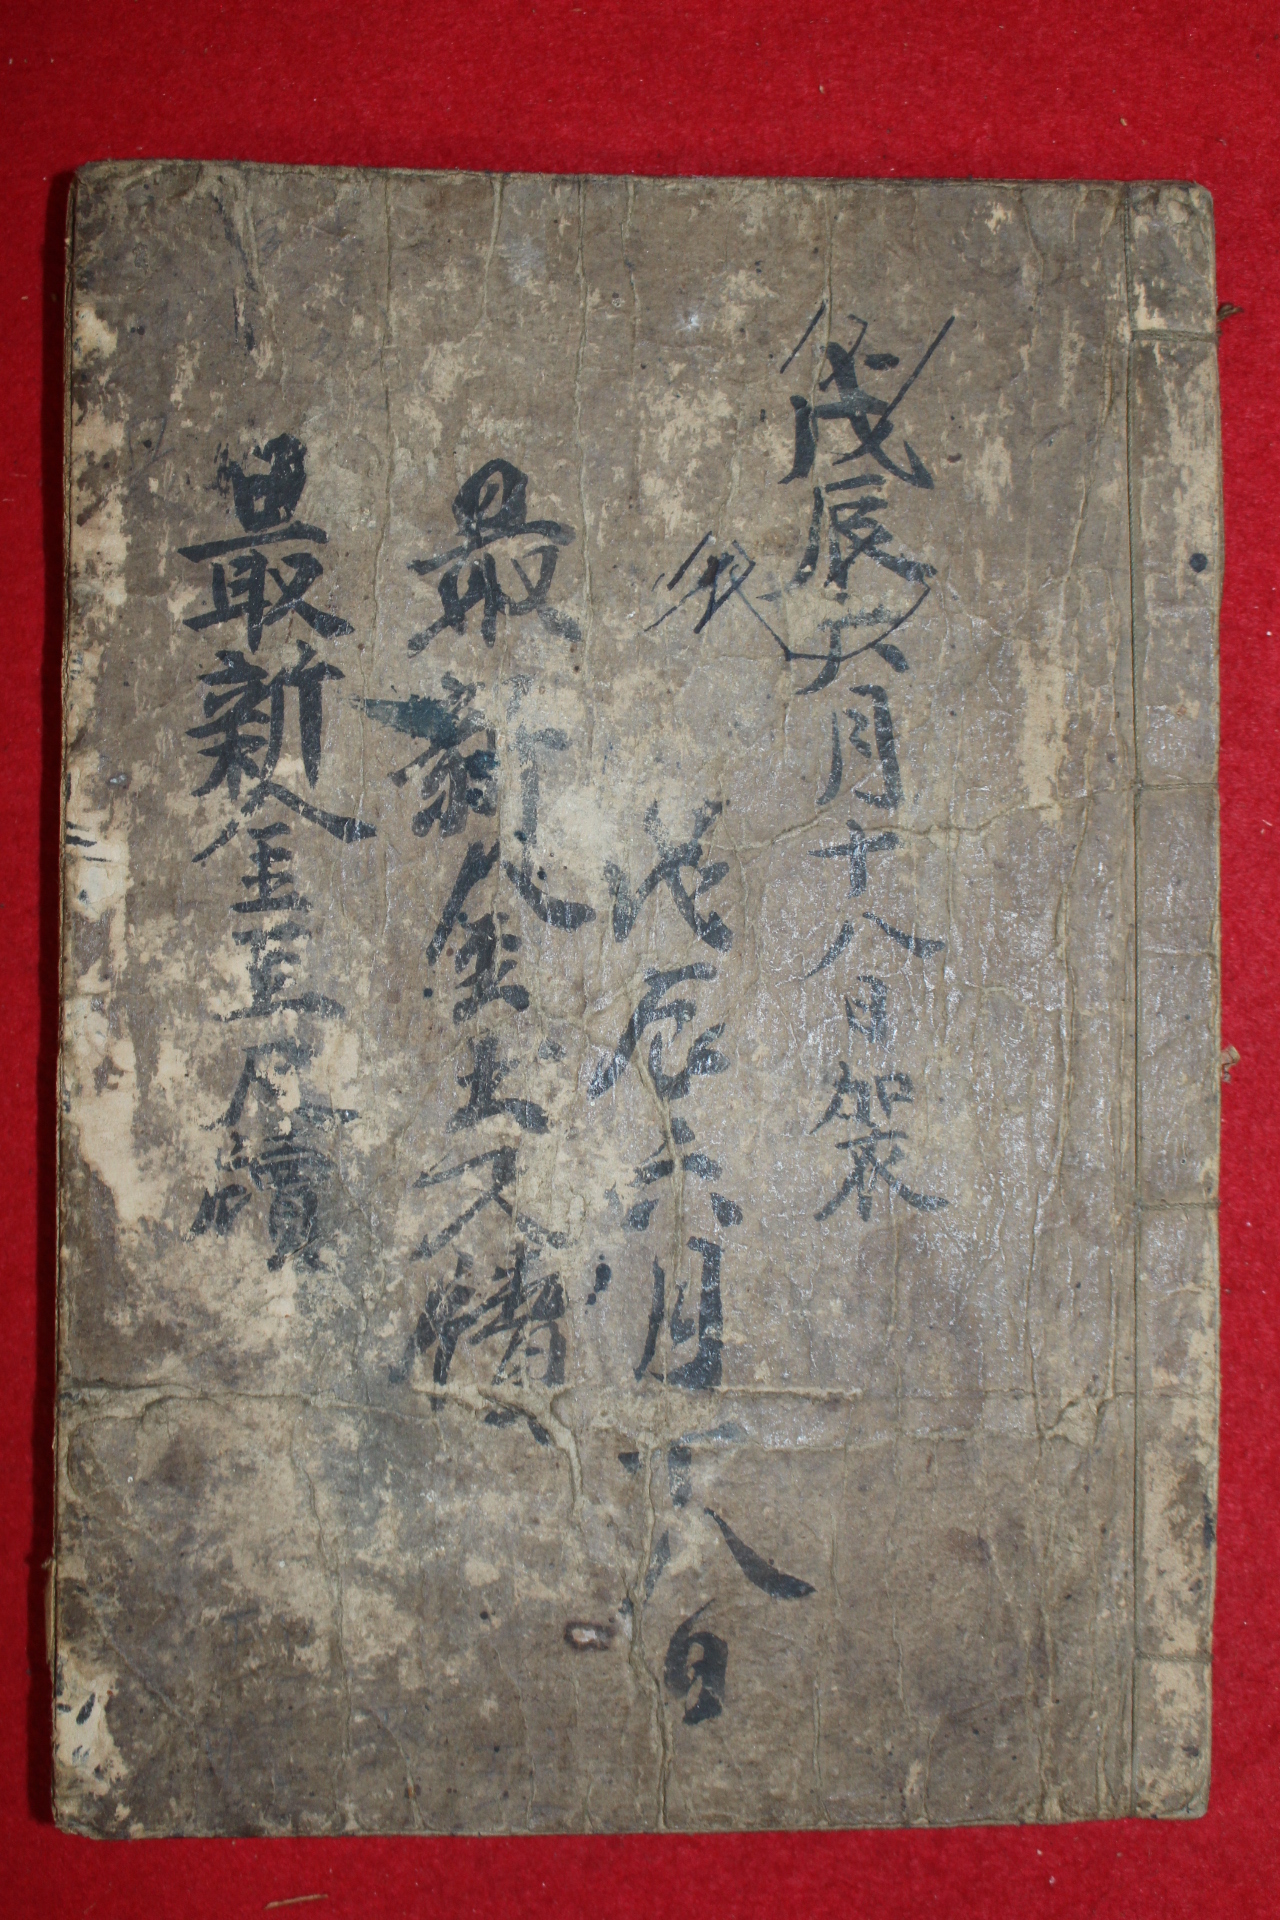 戊辰六月十八日架
戊辰六月十八日
最新金玉尺牘
最新全玉尺牘